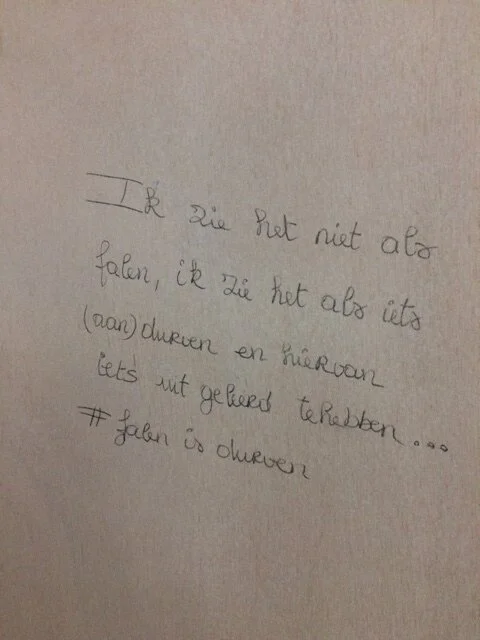 Ik zie het niet als
falen, ik zie het als iets
(aan)durven en hiervan
iets uit geleerd te hebben...
# falen is durven